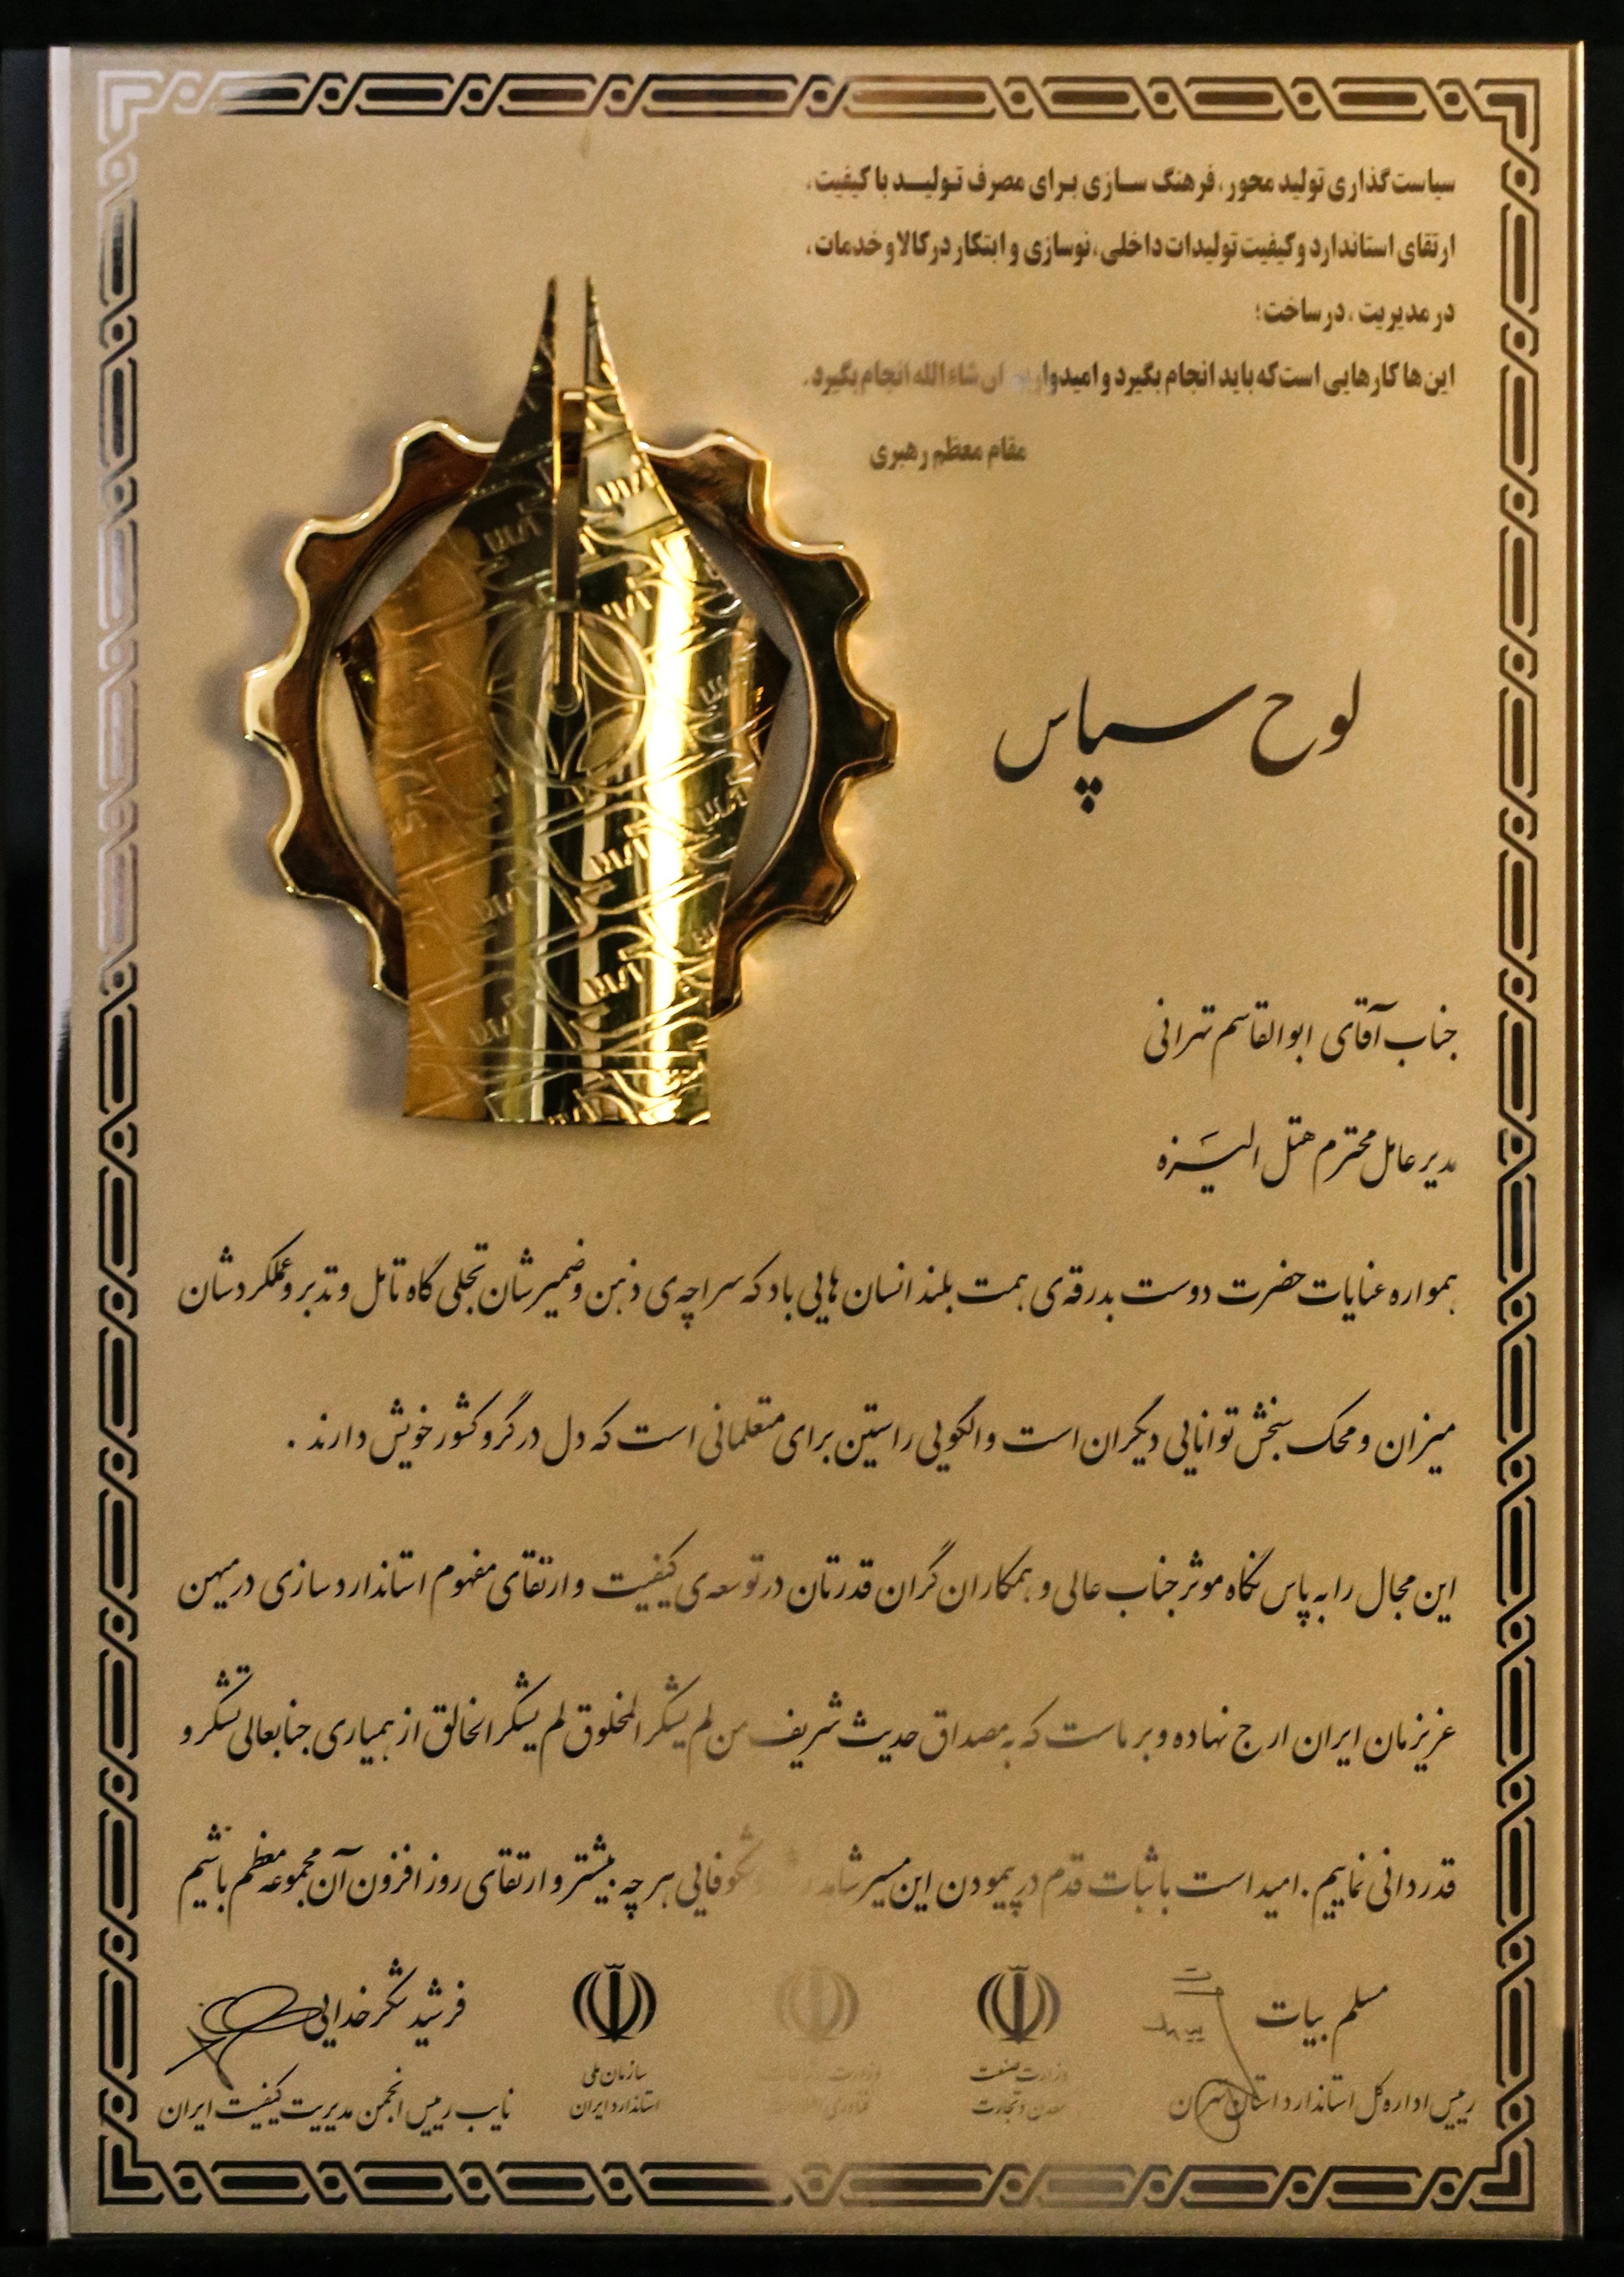 سیاست‌گذاری تولید محور، فرهنگ سازی برای مصرف تولید با کیفیت،
ارتقای استاندارد و کیفیت تولیدات داخلی، نوسازی و ابتکار در کالا و خدمات،
در مدیریت، در ساخت؛
این‌ها کارهایی است که باید انجام بگیرد و امیدواریم ان شاءالله انجام بگیرد.
مقام معظم رهبری
لوح سپاس
جناب آقای ابوالقاسم تهرانی
مدیر عامل محترم هتل الیزه
همواره عنایات حضرت دوست بدرقه‌ی همت بلند انسان هایی باد که سراچه‌ی ذهن و ضمیرشان تجلی گاه تامل و تدبر و عملکردشان
میزان و محک سنجش توانایی دیگران است و الگویی راستین برای متعلمانی است که دل در گرو کشور خویش دارند .
این مجال را به پاس نگاه موثر جناب عالی و همکاران گران قدرتان در توسعه‌ی کیفیت و ارتقای مفهوم استاندارد سازی در میهن
عزیزمان ایران ارج نهاده و بر ماست که به مصداق حدیث شریف من لم یشکر المخلوق لم یشکر الخالق از همیاری جنابعالی تشکر و
قدردانی نماییم . امید است با ثبات قدم در پیمودن این مسیر شاهد شکوفایی هر چه بیشتر و ارتقای روز افزون آن مجموعه معظم باشیم
مسلم بیات
رییس اداره کل استاندارد استان تهران
وزارت صنعت
معدن و تجارت
وزارت
فناوری
سازمان ملی
استاندارد ایران
فرشید شکرخدایی
نایب رییس انجمن مدیریت کیفیت ایران